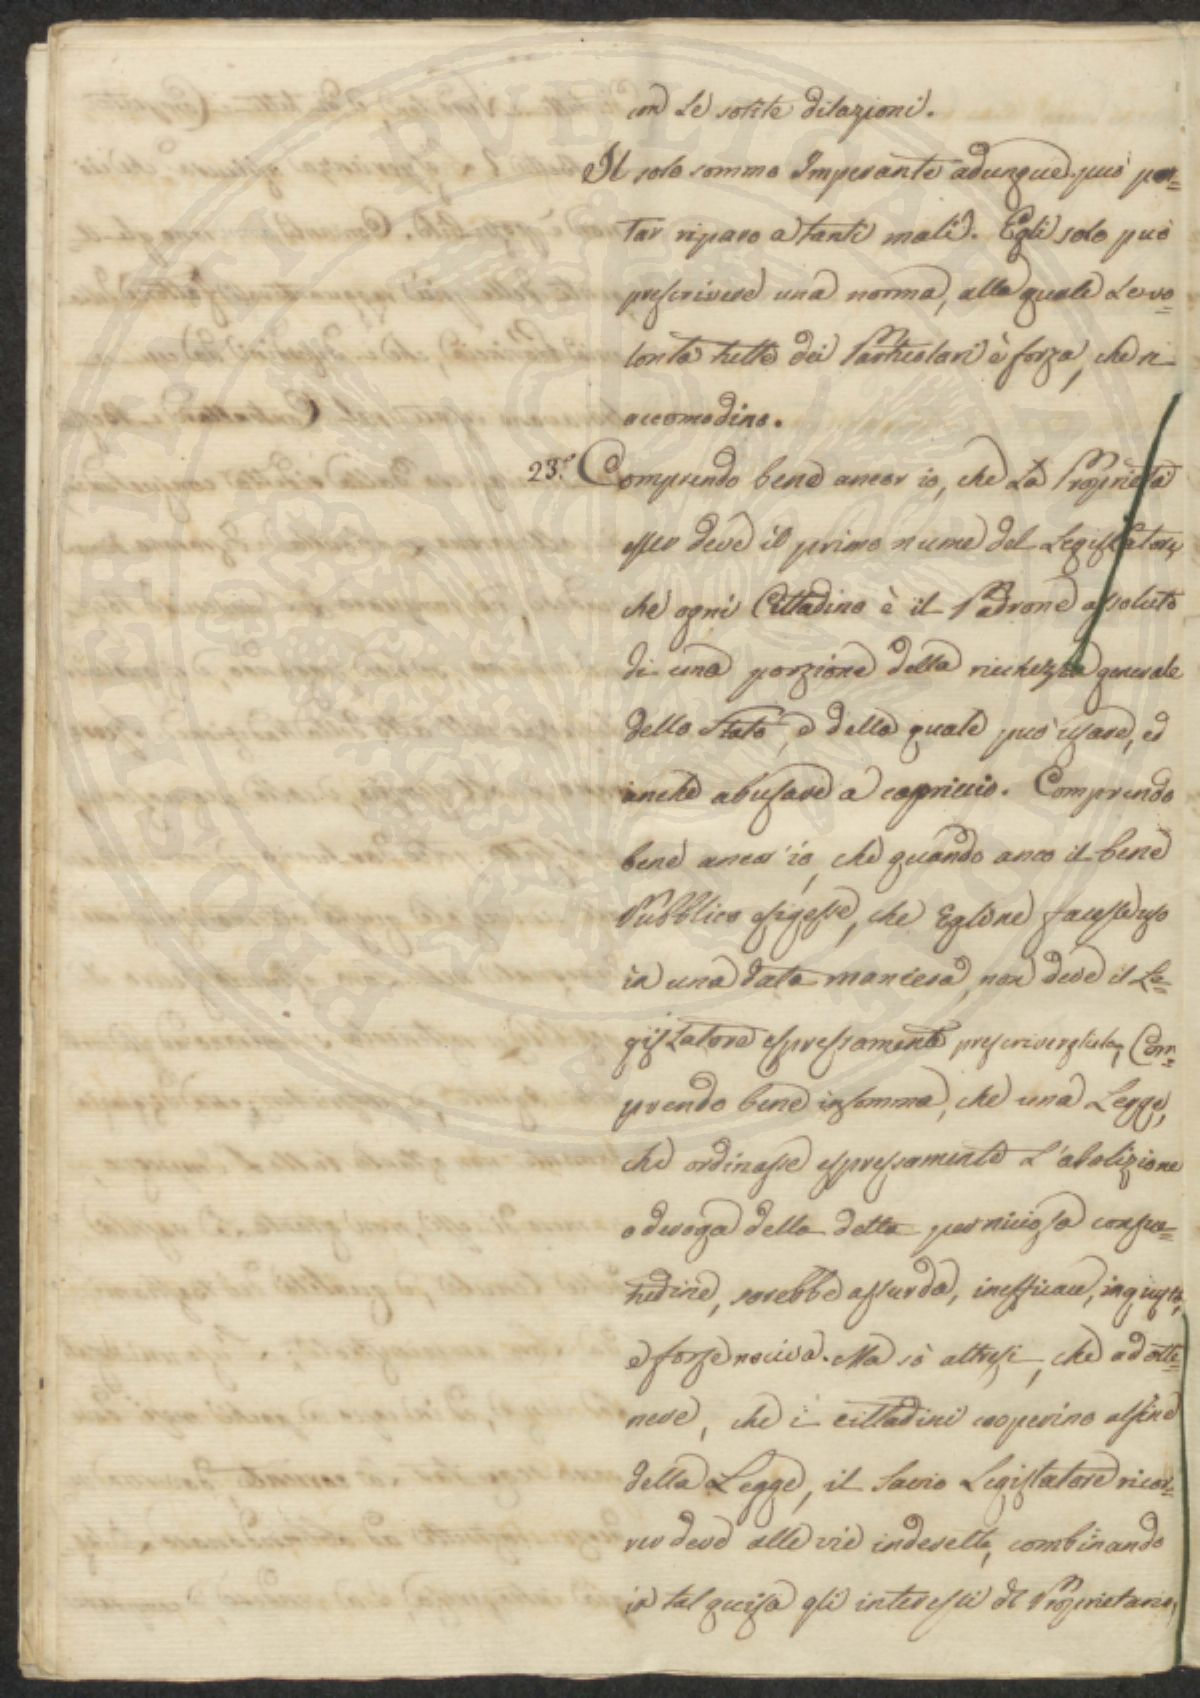 con le solite dilazioni.
Il solo sommo Imperante adunque può por=
tar riparo a tanti mali. Egli solo può
prescrivere una norma, alla quale le vo=
lontà tutte dei Particolari è forza, che si
accomodino.
23.° Comprendo bene ancor io, che la Proprietà
esser deve il primo nume del Legislatore,
che ogni Cittadino è il Padrone assoluto
di una porzione della ricchezza generale
dello Stato, e della quale può usare, ed
anche abusare a capriccio. Comprendo
bene ancor' io, che quando anco il bene
Pubblico esigesse, che Egli ne facesse uso
in una data maniera, non deve il Le=
gislatore espressamente prescrivergliela, Com=
prendo bene insomma, che una Legge,
che ordinasse espressamente l'abolizione
o deroga della detta perniciosa consue=
tudine, sarebbe assurda, inefficace, ingiusta,
e forse nociva. Ma sò altresì, che ad otte=
nere, che i cittadini cooperino al fine
della Legge, il Savio Legislatore ricor=
rer deve alle vie indirette, combinando
in tal guisa gli interessi di Proprietario,
PUBLIC